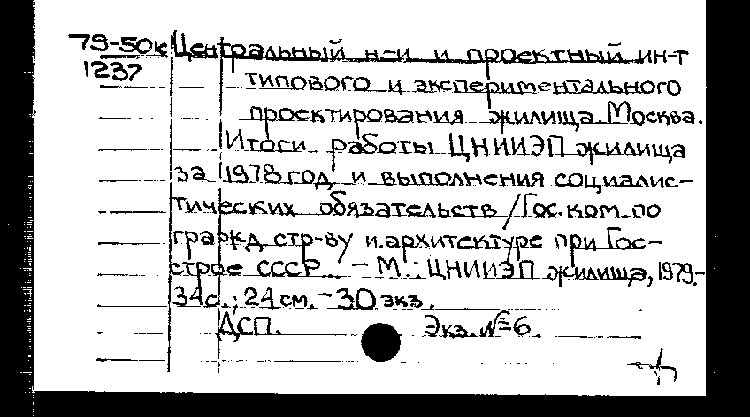 79-50к Центральный н-и и проектный ин-т
1237 типового и экспериментального
проектирования жилища. Москва.
Итоги работы ЦНИИЭП жилища
за 1978 год и выполнения социалис-
тических обязательств / Гос. ком. по
гражд. стр-ву и архитектуре при Гос-
строе СССР. - М.: ЦНИИЭП жилища, 1979.-
34 с.; 24 см. - 30 экз.
ДСП. Экз. № 6.